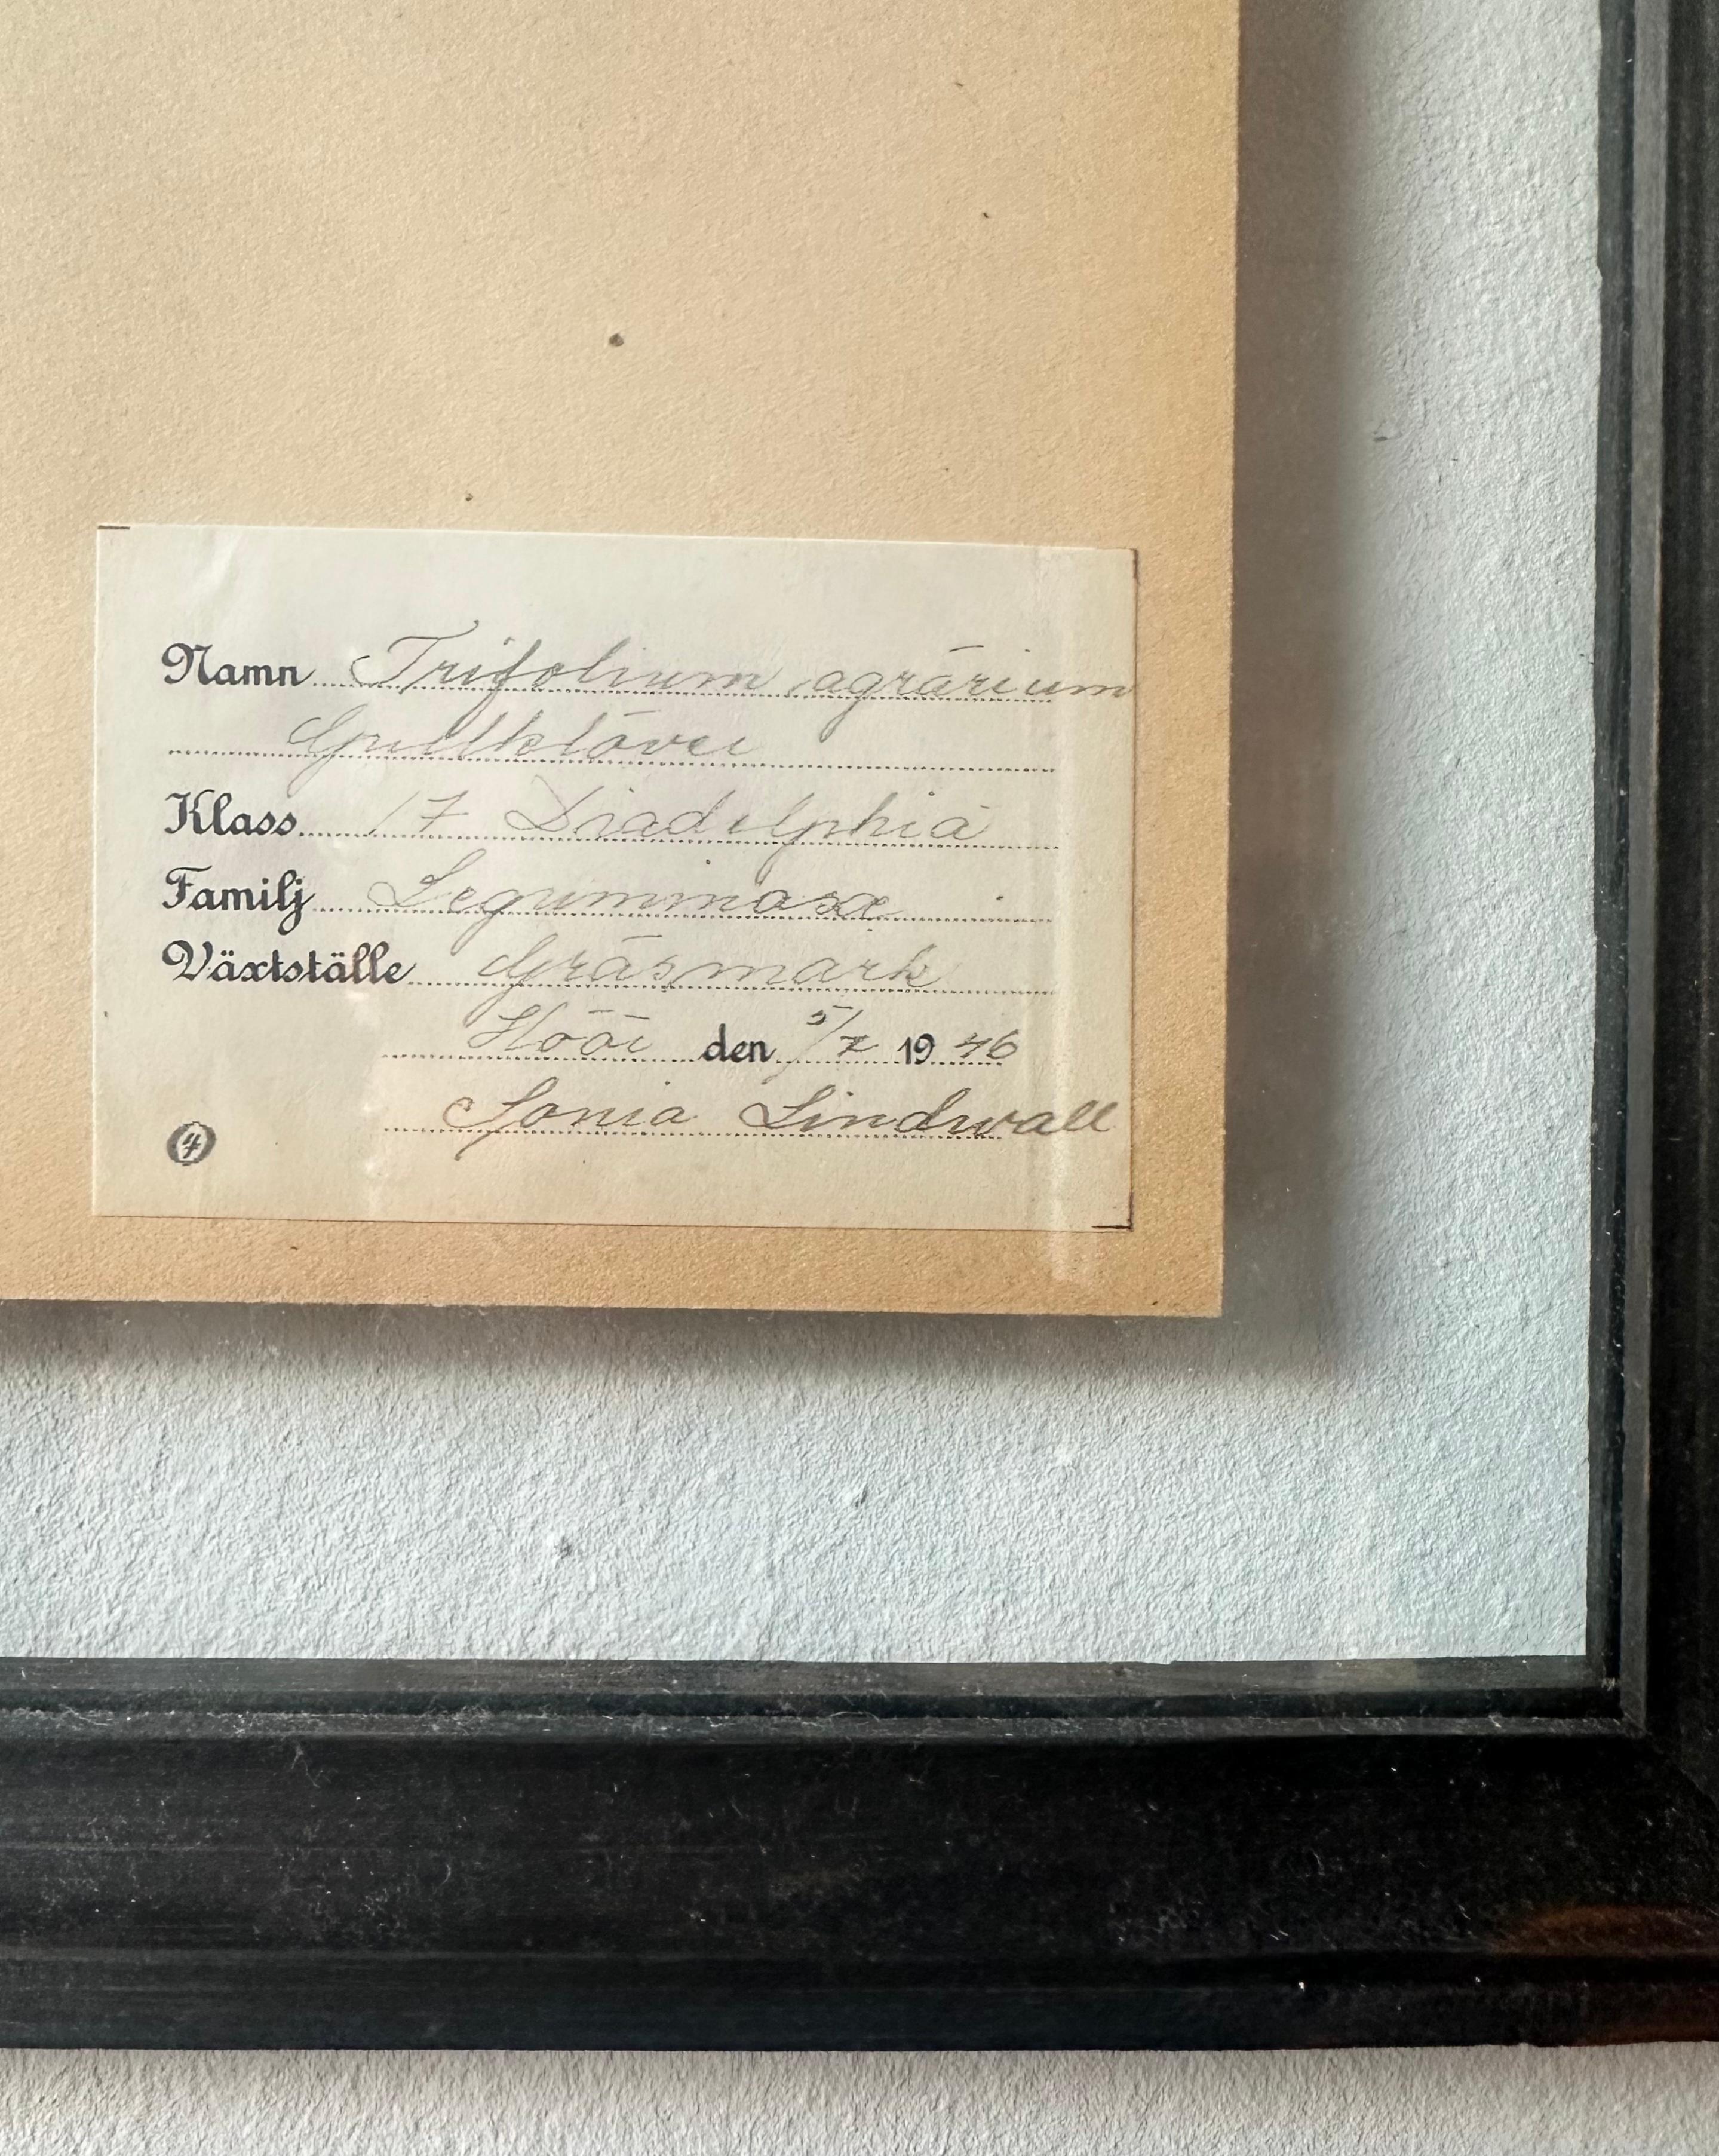 Namn Trifolium agrārium
Gullklöver
Klass 17 Diadelphia
Familj Leguminosæ
Växtställe Gräsmark
Höör den 5/7 1946
Sonia Lindwall
4